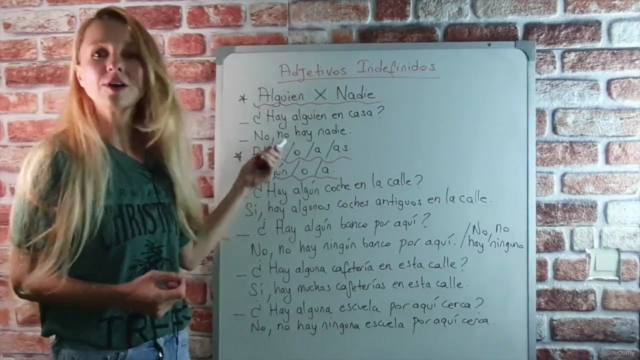 Adjetivos Indefinidos
* Alguien X Nadie
_ ¿Hay alguien en casa?
_ No, no hay nadie.
* /o /a /as
/o /a
¿Hay algún coche en la calle?
Sí, hay algunos coches antiguos en la calle.
_ ¿Hay algún banco por aquí?
No, no hay ningún banco por aquí. /No, no hay ninguno
_ ¿Hay alguna cafetería en esta calle?
_ Sí, hay muchas cafeterías en esta calle.
_ ¿Hay alguna escuela por aquí cerca?
No, no hay ninguna escuela por aquí cerca.
CHRISTM
TREE